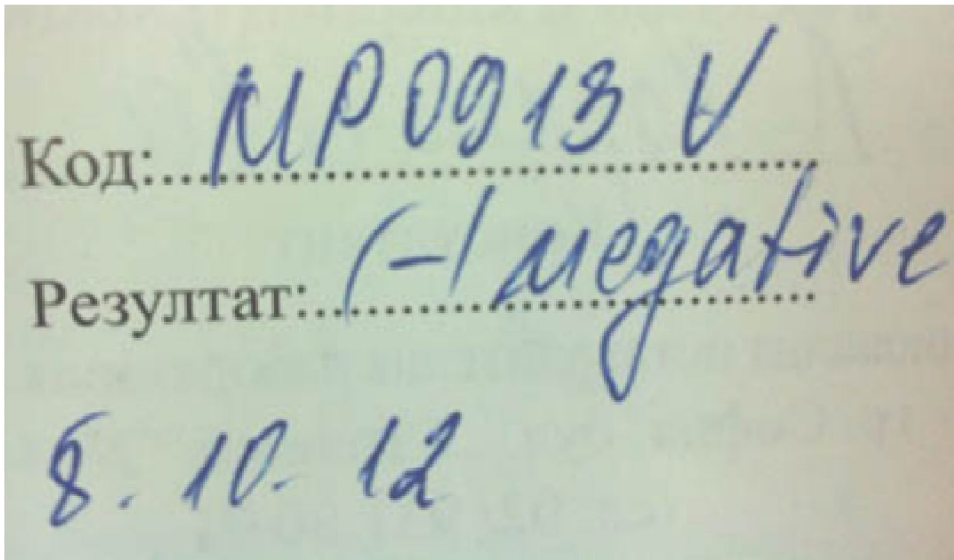 Код: MP0913 V
Резултат: (-) negative
8. 10. 12